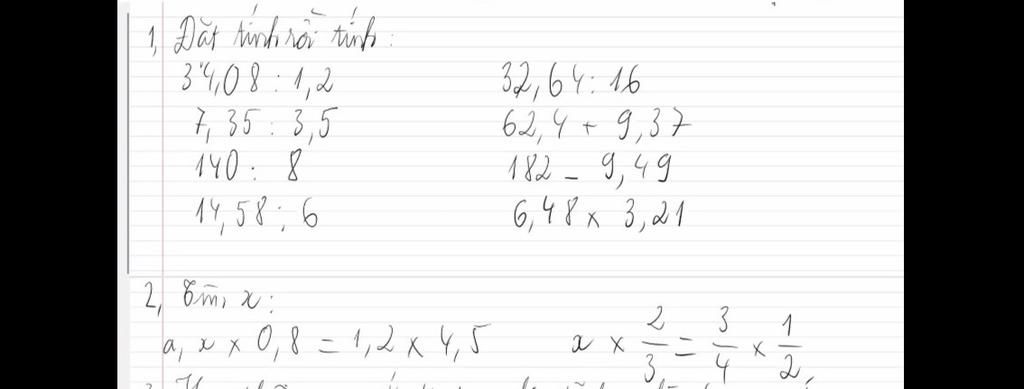 1, Đặt tính rồi tính:
34,08 : 1,2 32,64 : 16
7,35 : 3,5 62,4 + 9,37
140 : 8 182 - 9,49
14,58 : 6 6,48 x 3,21
2, Tìm x:
a, x x 0,8 = 1,2 x 4,5 x x 2/3 = 3/4 x 1/2